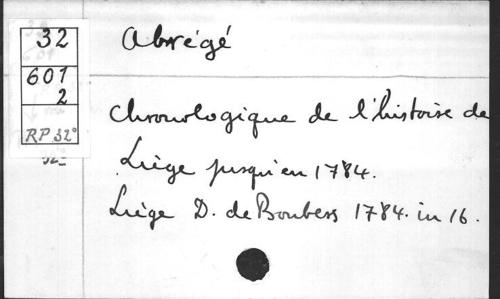 32
601
2
RP 32°
32=
Abrégé
chronologique de l'histoire de
Liège jusqu'en 1784.
Liège D. de Boubers 1784. in 16.